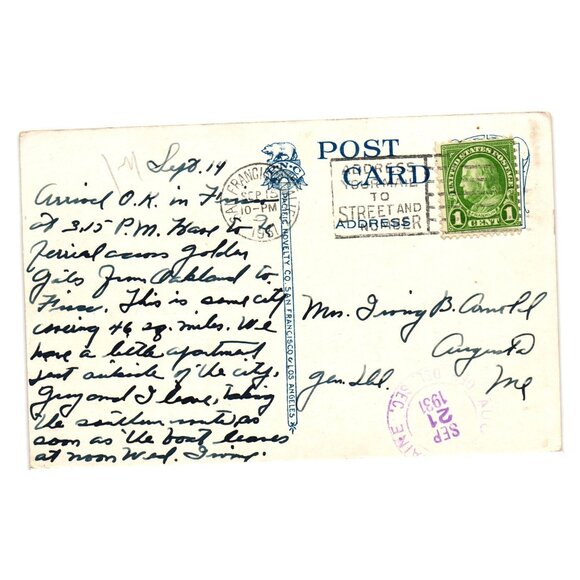 Sept. 14
Arrived O.K. in Frisco
at 3.15 P.M. Have to be
ferried across Golden
Gates from Oakland to
Frisco. This is some city
covering 46 sq. miles. We
have a little apartment
just outside of the city.
Guy and I leave, taking
the southern route as
soon as the boat leaves
at noon Wed. Irving.
POST CARD
ADDRESS
P.N.C.
PACIFIC NOVELTY CO. SAN FRANCISCO & LOS ANGELES
SAN FRANCISCO
SEP 15
10-PM
1931
ADDRESS
YOUR MAIL
TO
STREET AND
NUMBER
UNITED STATES POSTAGE
FRANKLIN
1 CENT 1
Mrs. Irving B. Arnold
Augusta
Gen. Del. Me
AUG
MAINE
SEP
21
1931
SEC.